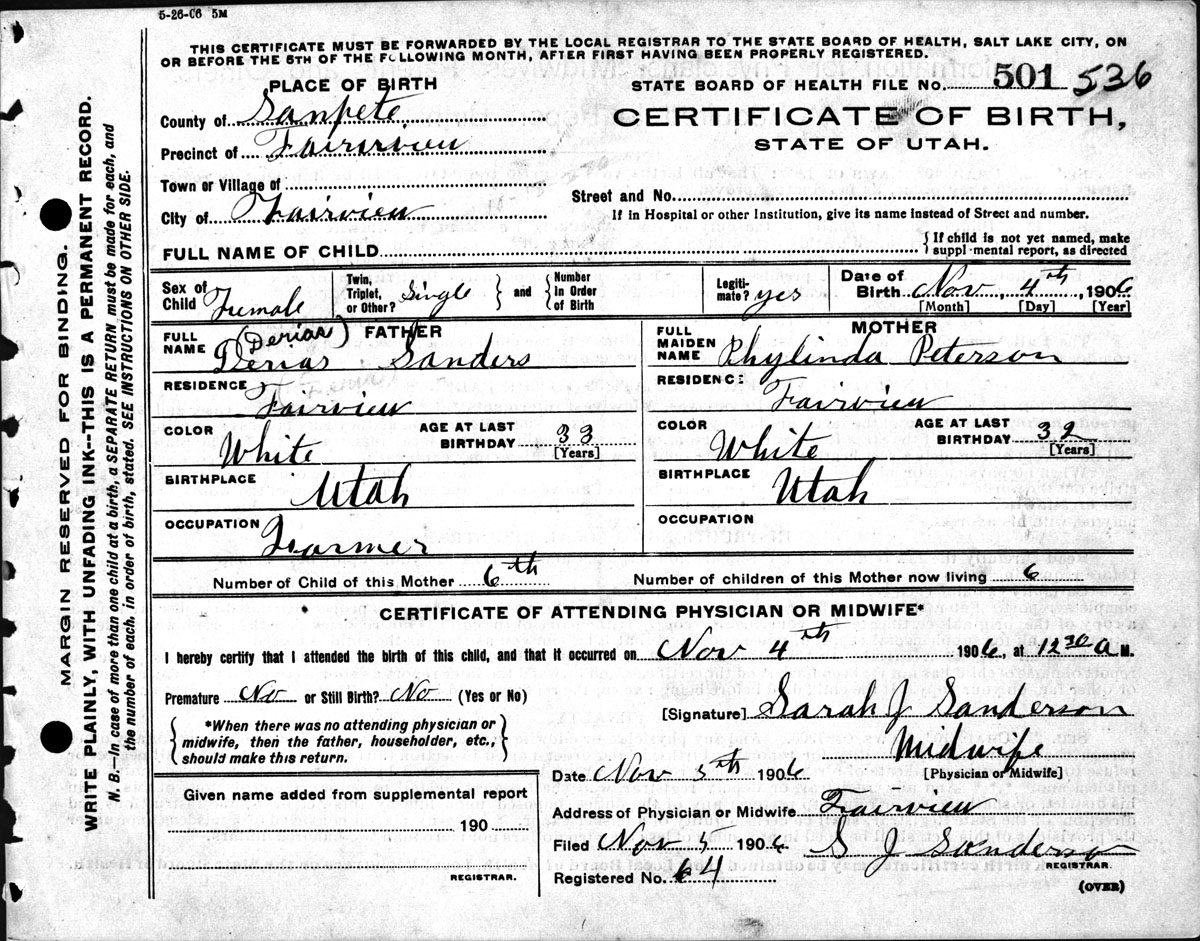 5-26-06 5M
THIS CERTIFICATE MUST BE FORWARDED BY THE LOCAL REGISTRAR TO THE STATE BOARD OF HEALTH, SALT LAKE CITY, ON
OR BEFORE THE 5TH OF THE FOLLOWING MONTH, AFTER FIRST HAVING BEEN PROPERLY REGISTERED.
PLACE OF BIRTH
STATE BOARD OF HEALTH FILE No. 501 536
County of Sanpete
CERTIFICATE OF BIRTH,
STATE OF UTAH.
Precinct of Fairview
Town or Village of
Street and No.
City of Fairview
If in Hospital or other Institution, give its name instead of Street and number.
FULL NAME OF CHILD
{ If child is not yet named, make
supplemental report, as directed
Sex of Child Female
Twin, Triplet, or Other? Single } and { Number in Order of Birth
Legiti-mate? yes
Date of Birth Nov. 4th, 1906
[Month] [Day] [Year]
FATHER
FULL NAME (Derias) Derias Sanders
MOTHER
FULL MAIDEN NAME Phylinda Peterson
RESIDENCE Fairview
RESIDENCE Fairview
COLOR White
AGE AT LAST BIRTHDAY 33 [Years]
COLOR White
AGE AT LAST BIRTHDAY 32 [Years]
BIRTHPLACE Utah
BIRTHPLACE Utah
OCCUPATION Farmer
OCCUPATION
Number of Child of this Mother 6th
Number of children of this Mother now living 6
CERTIFICATE OF ATTENDING PHYSICIAN OR MIDWIFE*
I hereby certify that I attended the birth of this child, and that it occurred on Nov 4th 1906, at 12 30 A M.
Premature No or Still Birth? No (Yes or No)
[Signature] Sarah J Sanderson
{ *When there was no attending physician or
midwife, then the father, householder, etc.,
should make this return. }
Midwife
[Physician or Midwife]
Date Nov 5th 1906
Given name added from supplemental report
190
REGISTRAR.
Address of Physician or Midwife Fairview
Filed Nov 5 1906 S J Sanderson
REGISTRAR
Registered No. 64
(OVER)
MARGIN RESERVED FOR BINDING.
WRITE PLAINLY, WITH UNFADING INK--THIS IS A PERMANENT RECORD.
N. B.—In case of more than one child at a birth, a SEPARATE RETURN must be made for each, and
the number of each, in order of birth, stated. SEE INSTRUCTIONS ON OTHER SIDE.